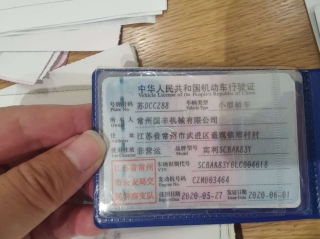 中华人民共和国机动车行驶证
Vehicle License of the People's Republic of China
号牌号码 苏DCCZ88 车辆类型 小型轿车
Plate No. Vehicle Type
所有人 常州国丰机械有限公司
Owner
住址 江苏省常州市武进区
Address
使用性质 非营运 品牌型号 宾利SCBAK83Y
Use Character Model
江苏省常州 车辆识别代号
VIN
市公安局交 发动机号码 CZN003464
Engine No.
通警察支队 注册日期 2020-05-27 发证日期 2020-06-01
Register Date Issue Date